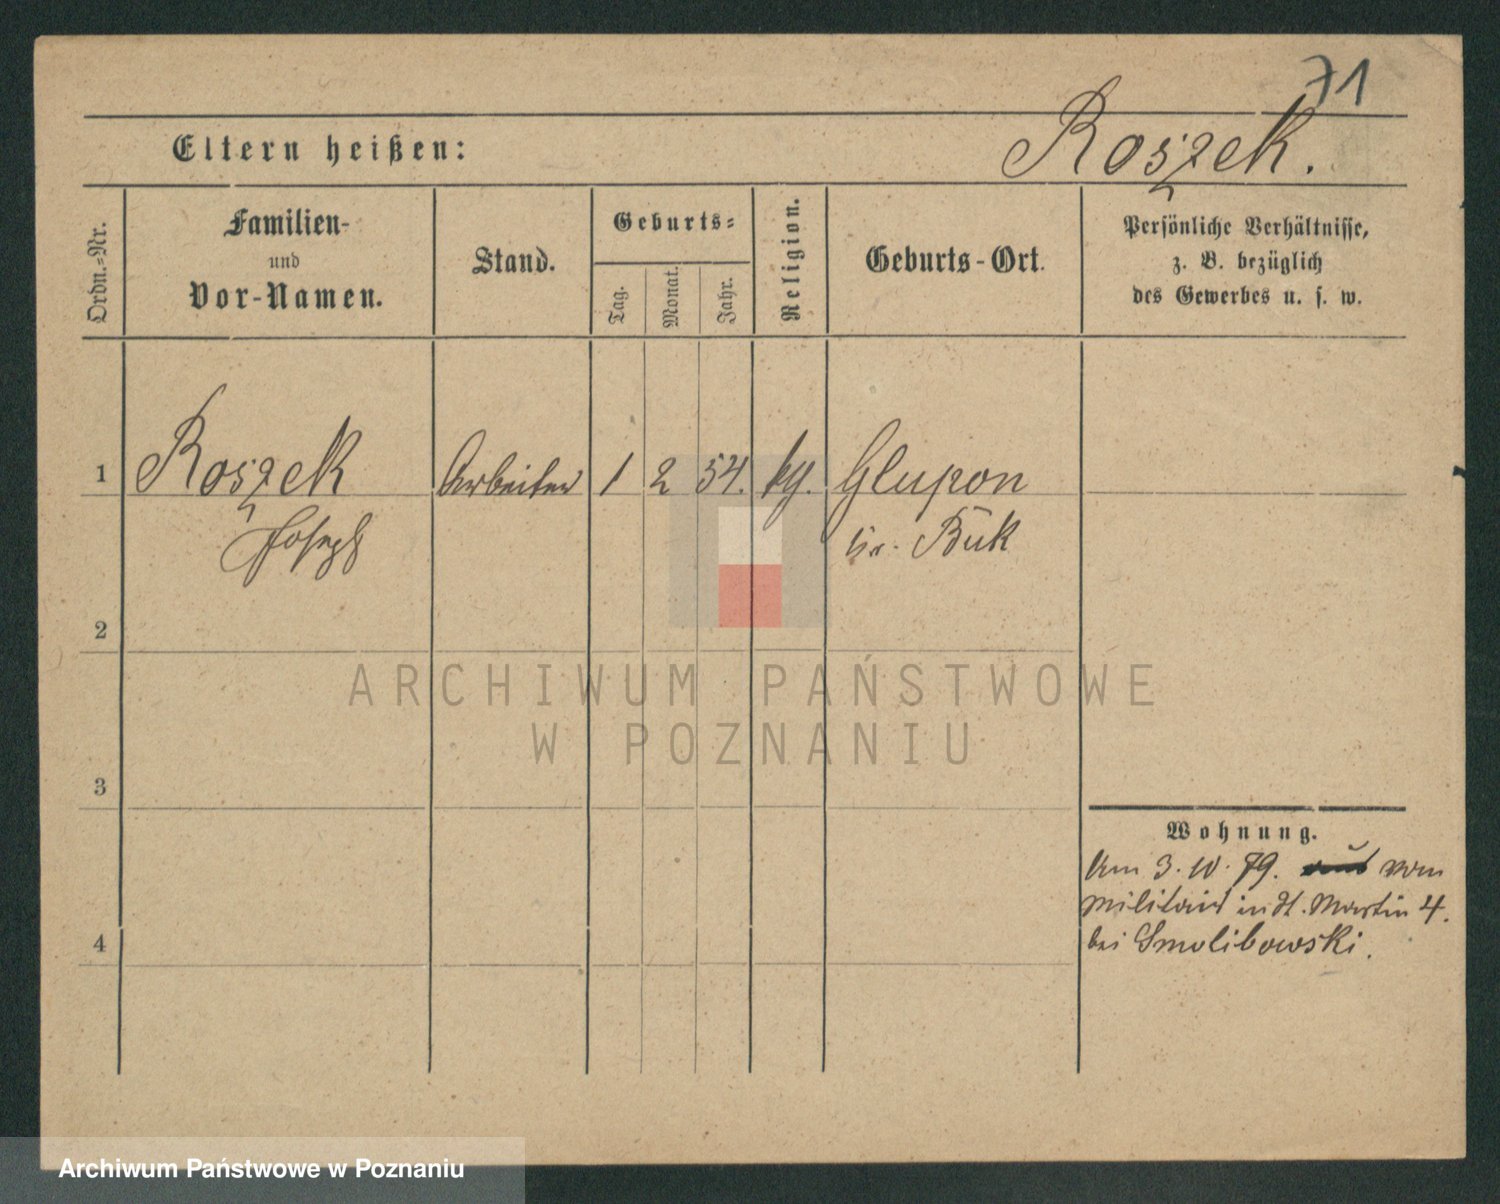 71
Eltern heißen:
Roszek.
Ordn.-Nr.
Familien-
und
Vor-Namen.
Stand.
Geburts-
Tag.
Monat.
Jahr.
Religion.
Geburts-Ort.
Persönliche Verhältnisse,
z. B. bezüglich
des Gewerbes u. s. w.
1 Roszek Arbeiter 1 2 54. kg. Glupon
Joseph
Kr. Buk
2
ARCHIWUM PAŃSTWOWE
W POZNANIU
3
Wohnung.
Am 3. 10. 79. vom
Militair in St. Martin 4.
bei Smolibowski.
4
Archiwum Państwowe w Poznaniu